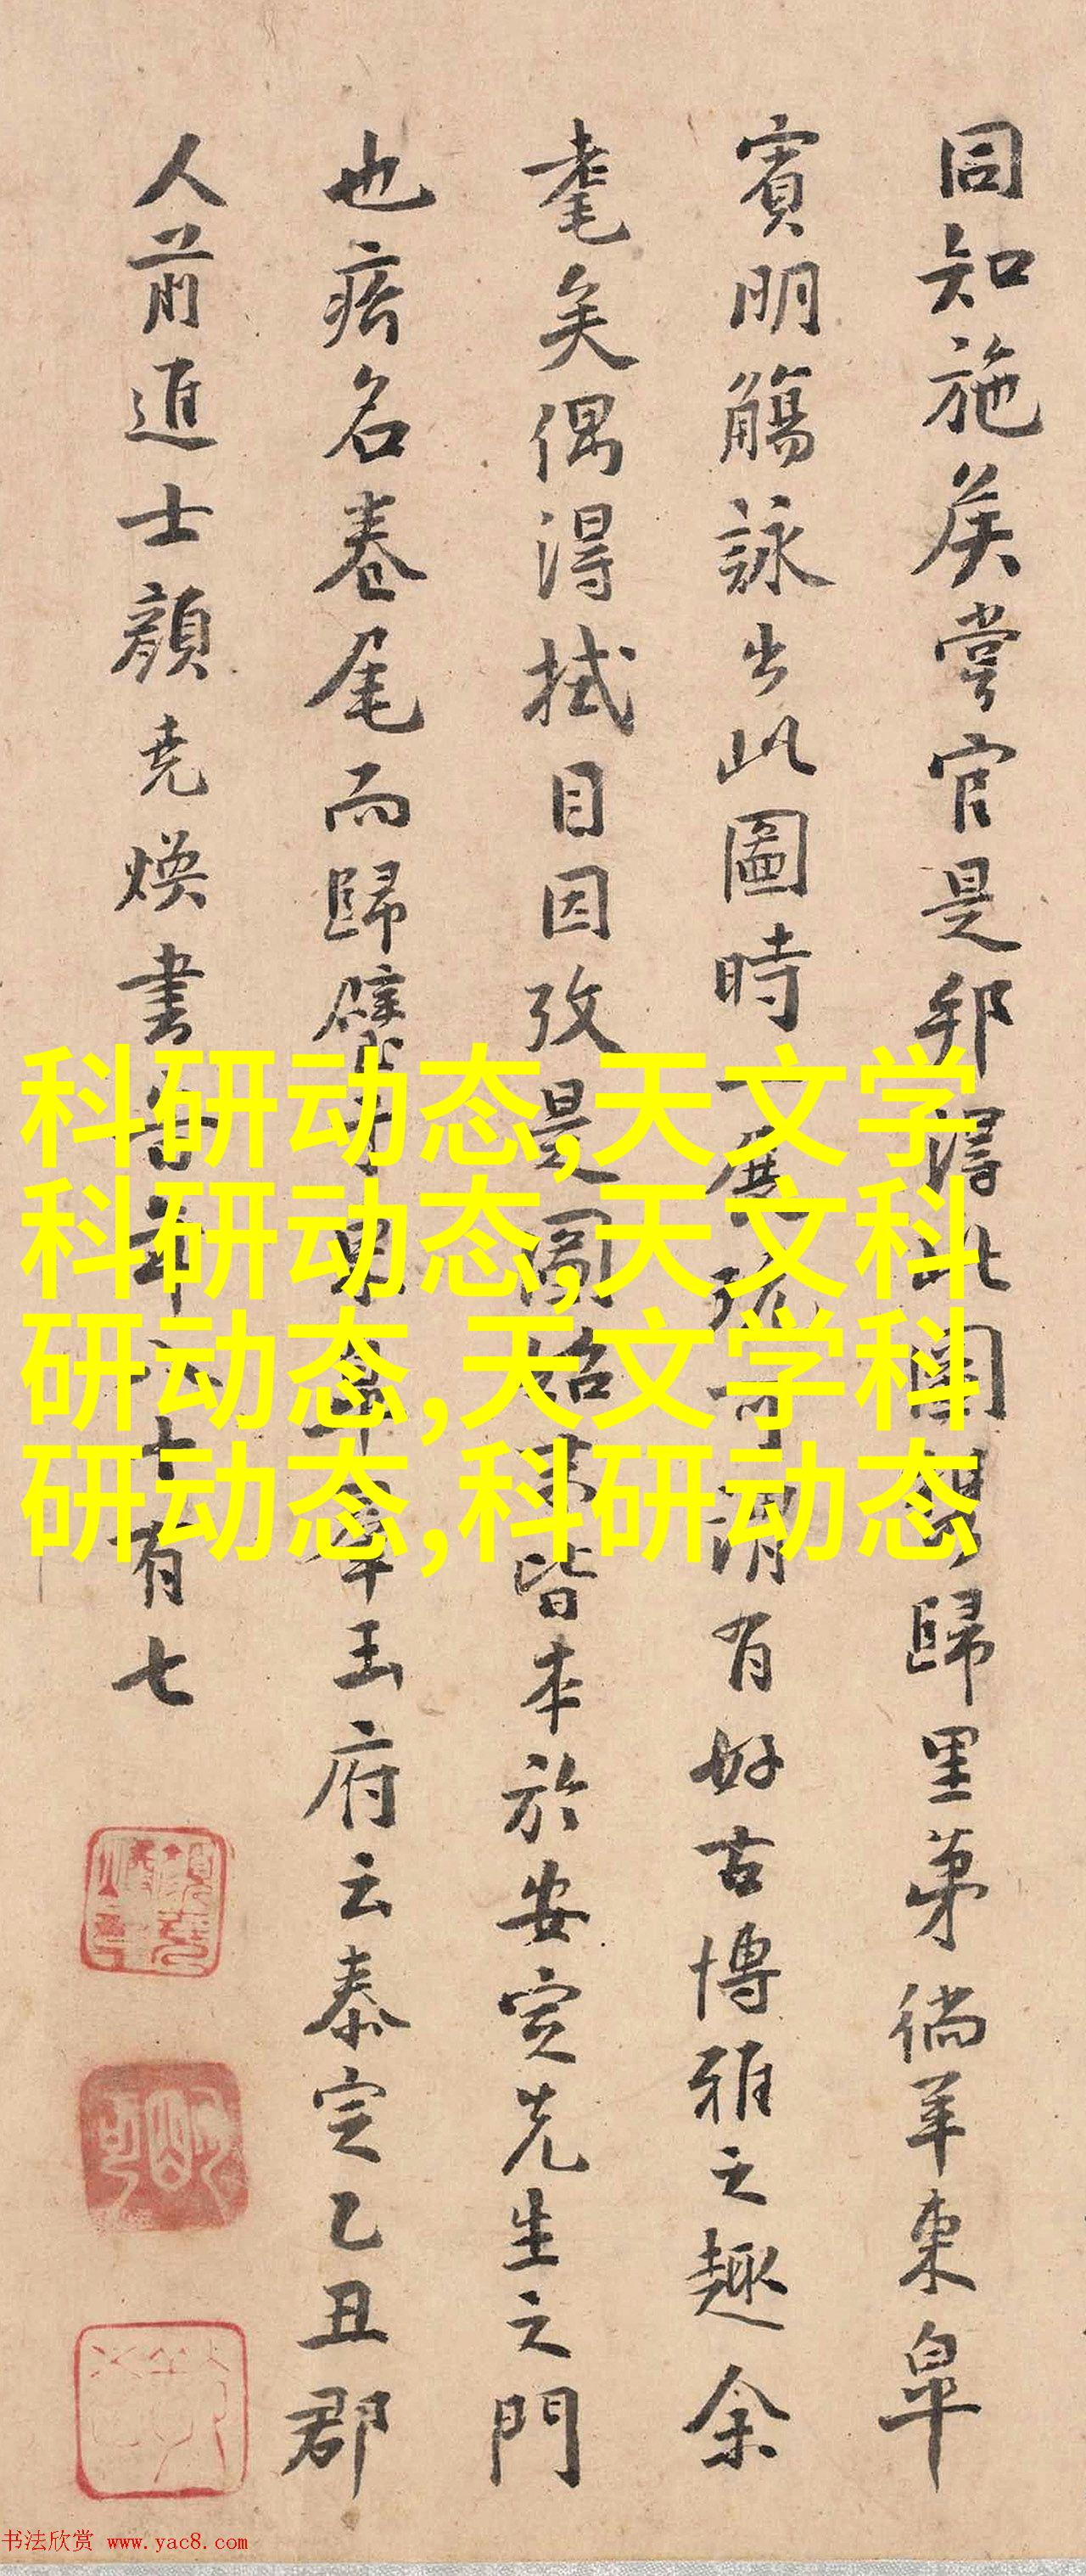 同知施侯嘗官是邦得此圖攜歸里苐徜羊東皐
賓明觴詠出此圖時一展玩可謂有好古博雅之趣余
耄矣偶得拭目因攷是圖始末皆本於安定先生之門
也瘔名卷尾而歸璧
玉府云泰定乙丑郡
人前進士顏堯煥書
七十有七
科研动态,天文学
科研动态,天文科
研动态,天文学科
研动态,科研动态
书法欣赏 www.yac8.com